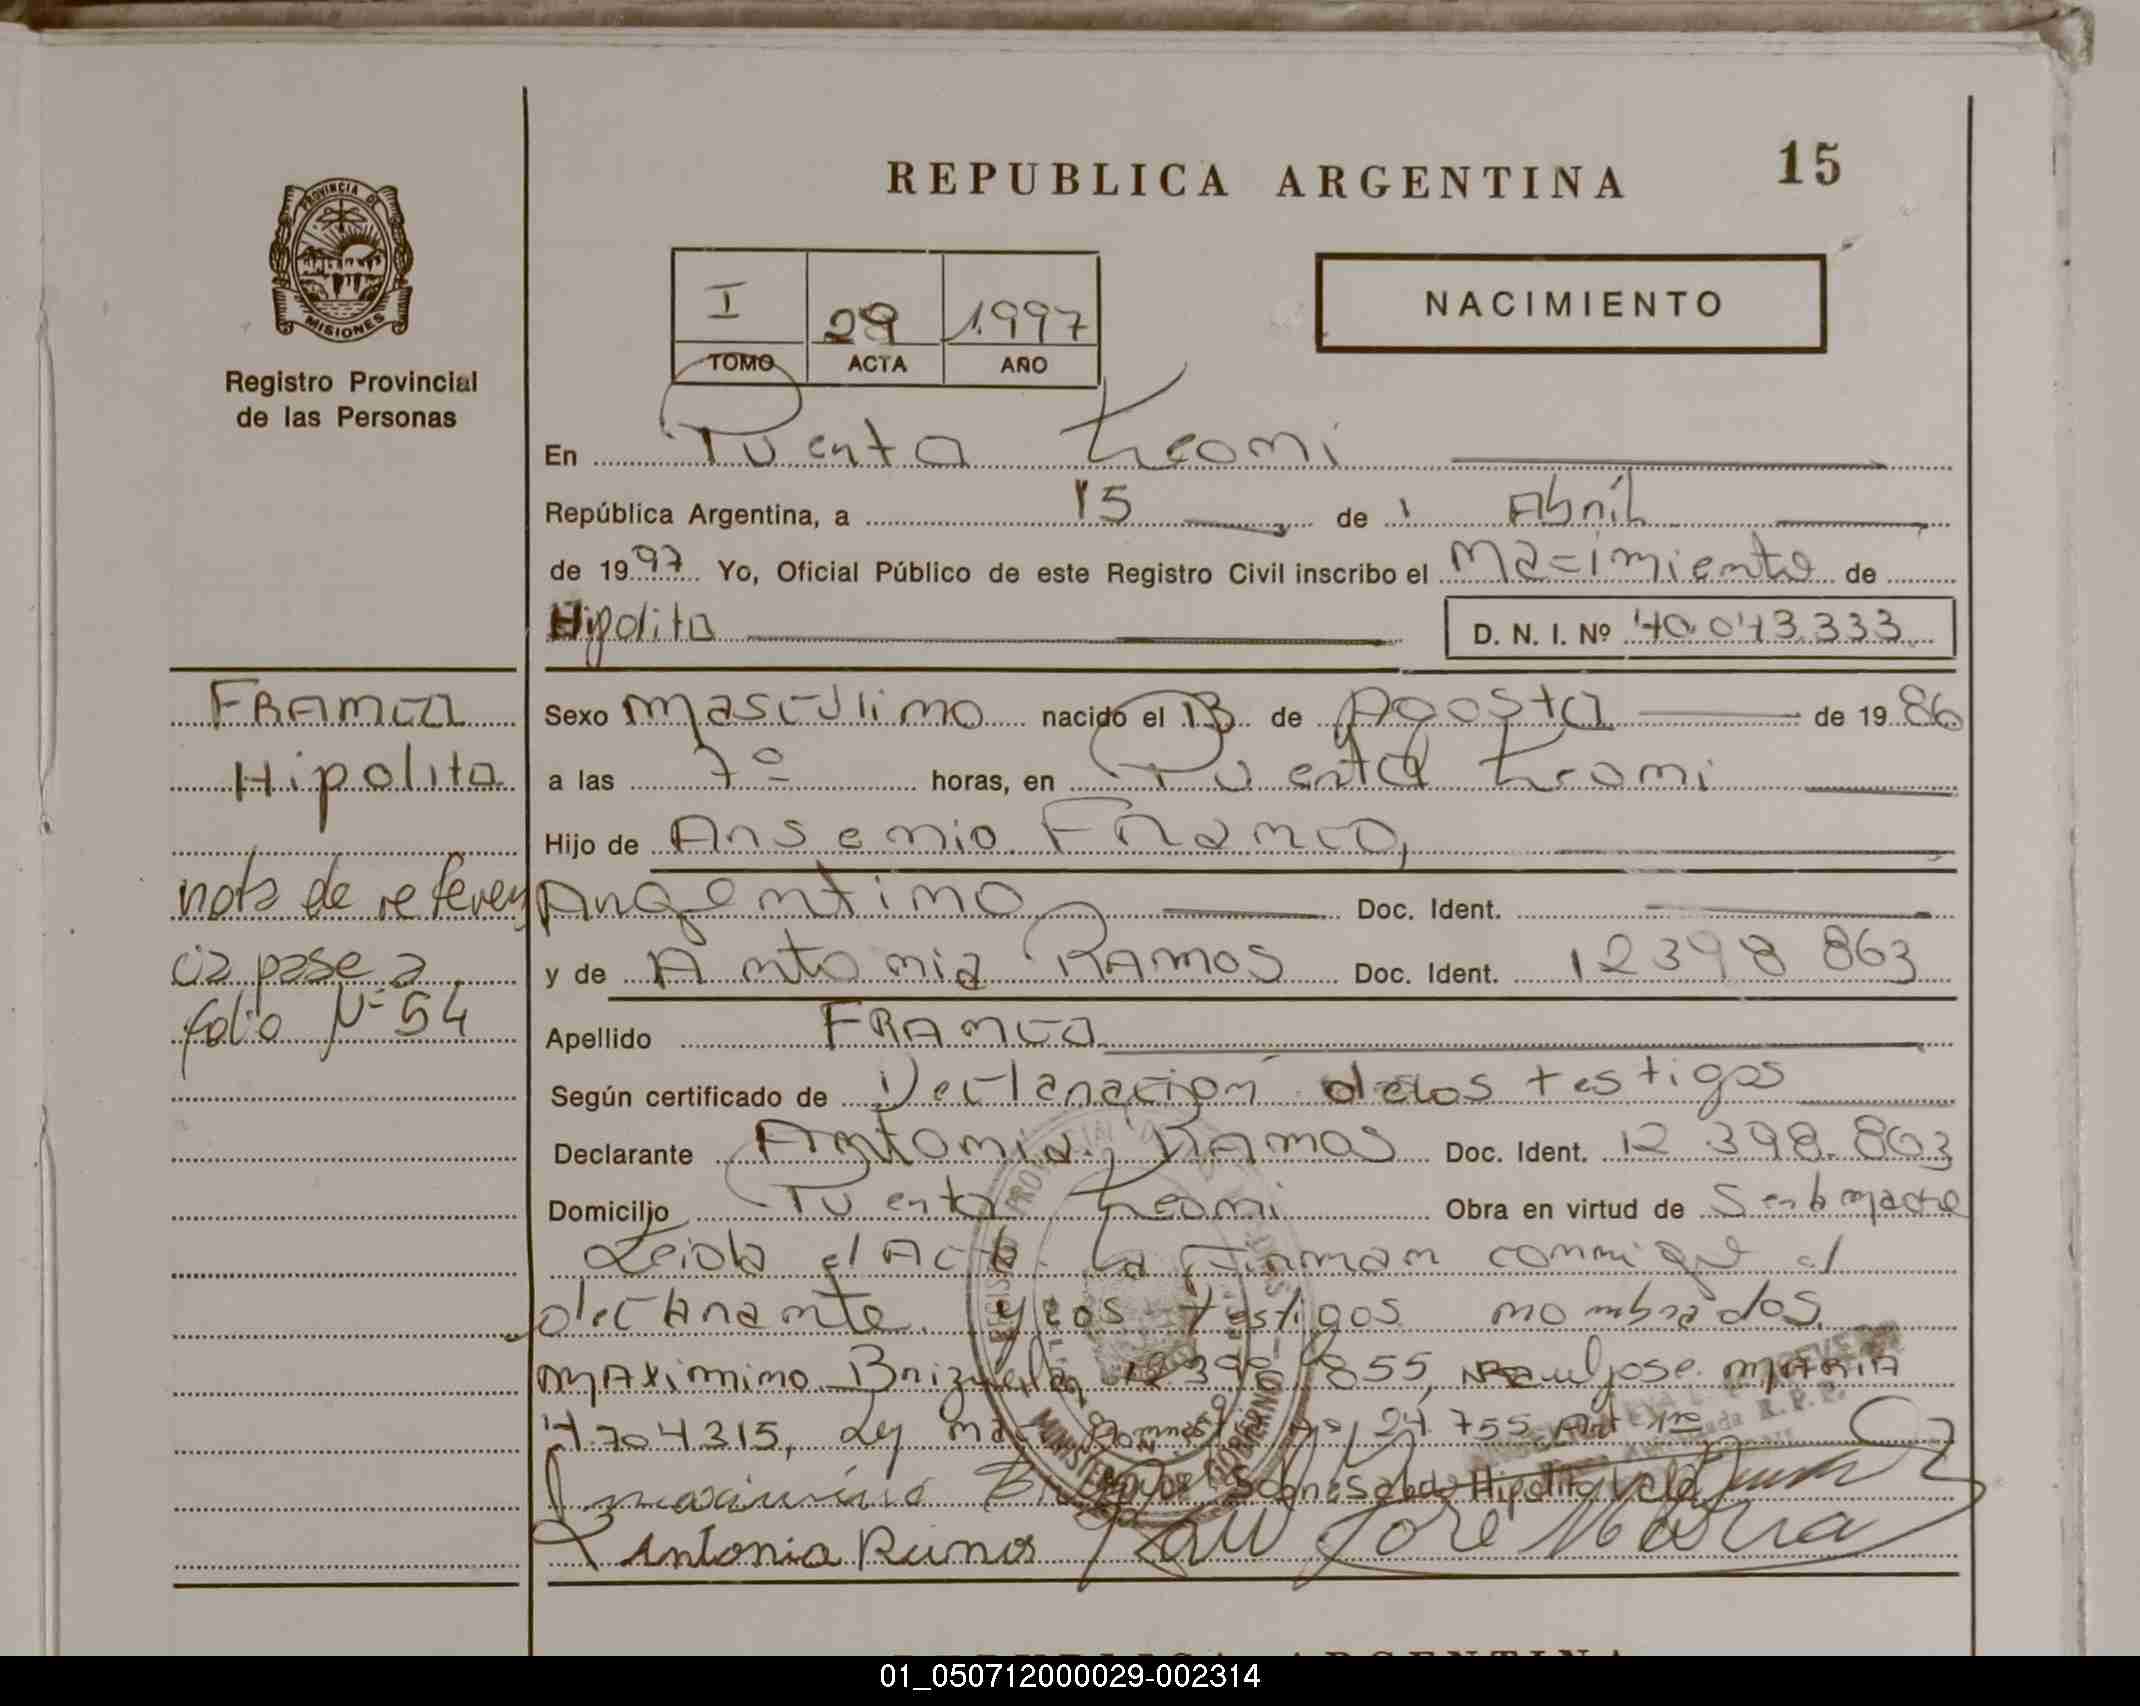 REPUBLICA ARGENTINA
15
PROVINCIA DE
MISIONES
Registro Provincial
de las Personas
I
29
1997
TOMO
ACTA
AÑO
NACIMIENTO
En Puerto Leoni
República Argentina, a 15 de Abril
de 1997 Yo, Oficial Público de este Registro Civil inscribo el Nacimiento de
Hipolito
D. N. I. Nº 40.043.333
FRANCO
Hipolito
nota de referen
cia pase a
folio Nº 54
Sexo masculino nacido el 13 de Agosto de 1986
a las 7º horas, en Puerto Leoni
Hijo de Ansenio Franco,
Argentino Doc. Ident.
y de Antonia RAMOS Doc. Ident. 12398 863
Apellido FRANCO
Según certificado de Declaracion delos testigos
Declarante Antonia RAMOS Doc. Ident. 12 398.863
Domicilio Puerto Leoni Obra en virtud de Ser la madre
Leida el Acta La Firman conmigo el
declarante y los testigos nombrados
MAXimino Brizuela 12398 855, Raul jose MARIA
4704315, Ley 24.755 Art 1ro
Sobre Hipolito Vale
Antonia Ramos Raul Jose Maria
REPUBLICA ARGENTINA
01_050712000029-002314